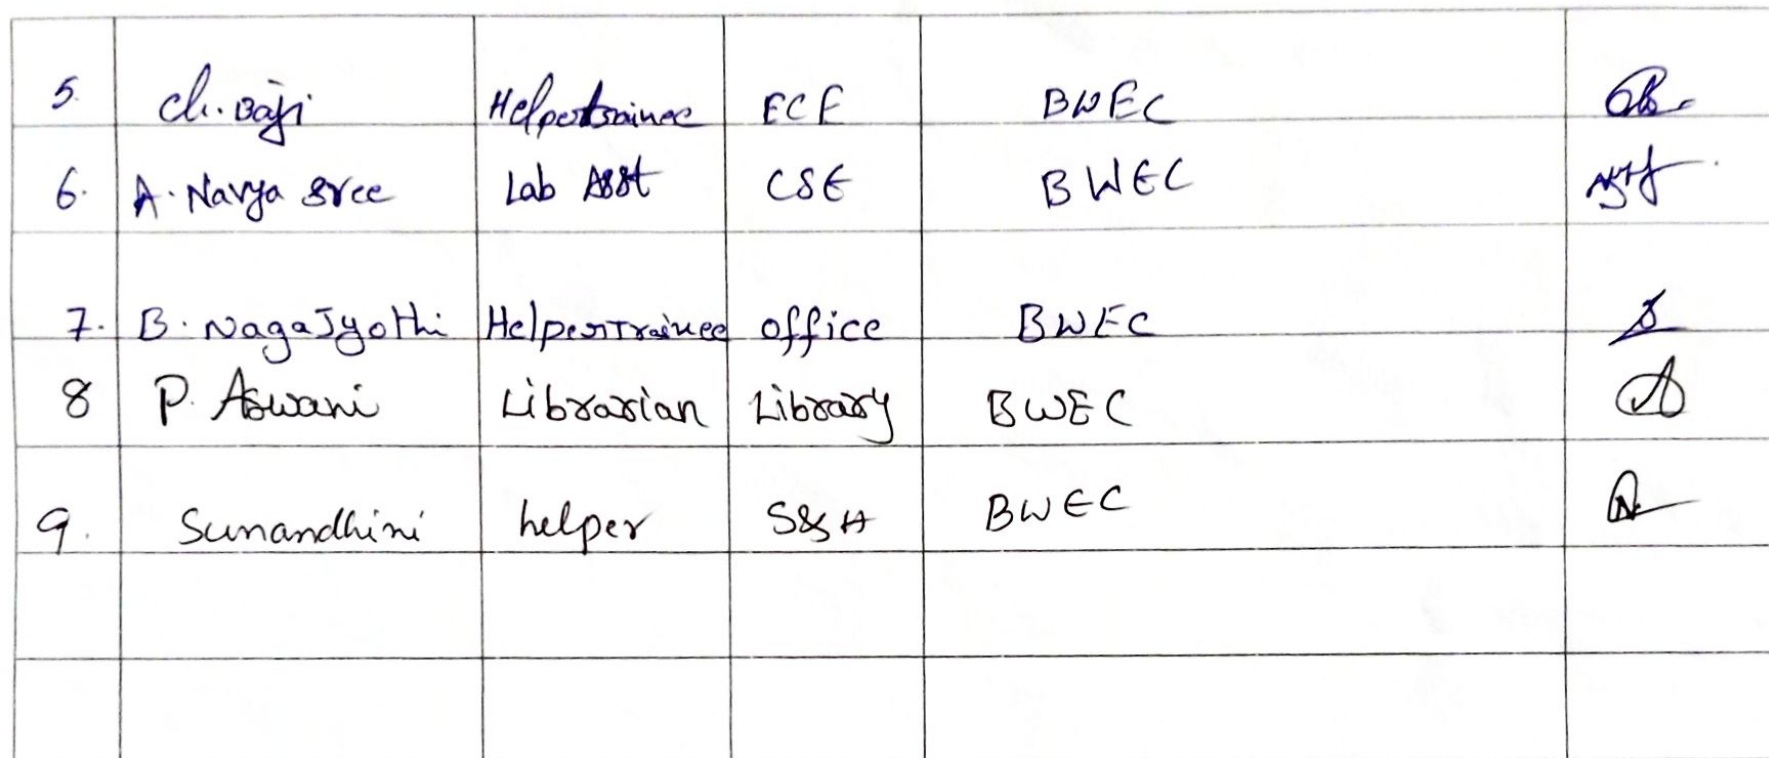 5. Ch. Baji Helper trainee ECE BWEC
6. A. Navya sree Lab Asst CSE BWEC
7. B. Naga Jyothi Helper Trainee office BWEC
8 P. Aswani Librarian Library BWEC
9. Sunandhini helper S&H BWEC